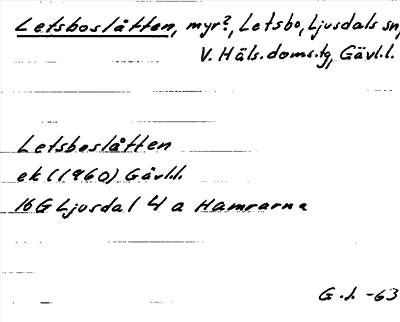 Letsboslåtten, myr?, Letsbo, Ljusdals sn,
V. Häls. doms.tg, Gävl.l.
Letsboslåtten
ek (1960) Gävl.l.
16G Ljusdal 4 a Hamrarna
G.J. -63